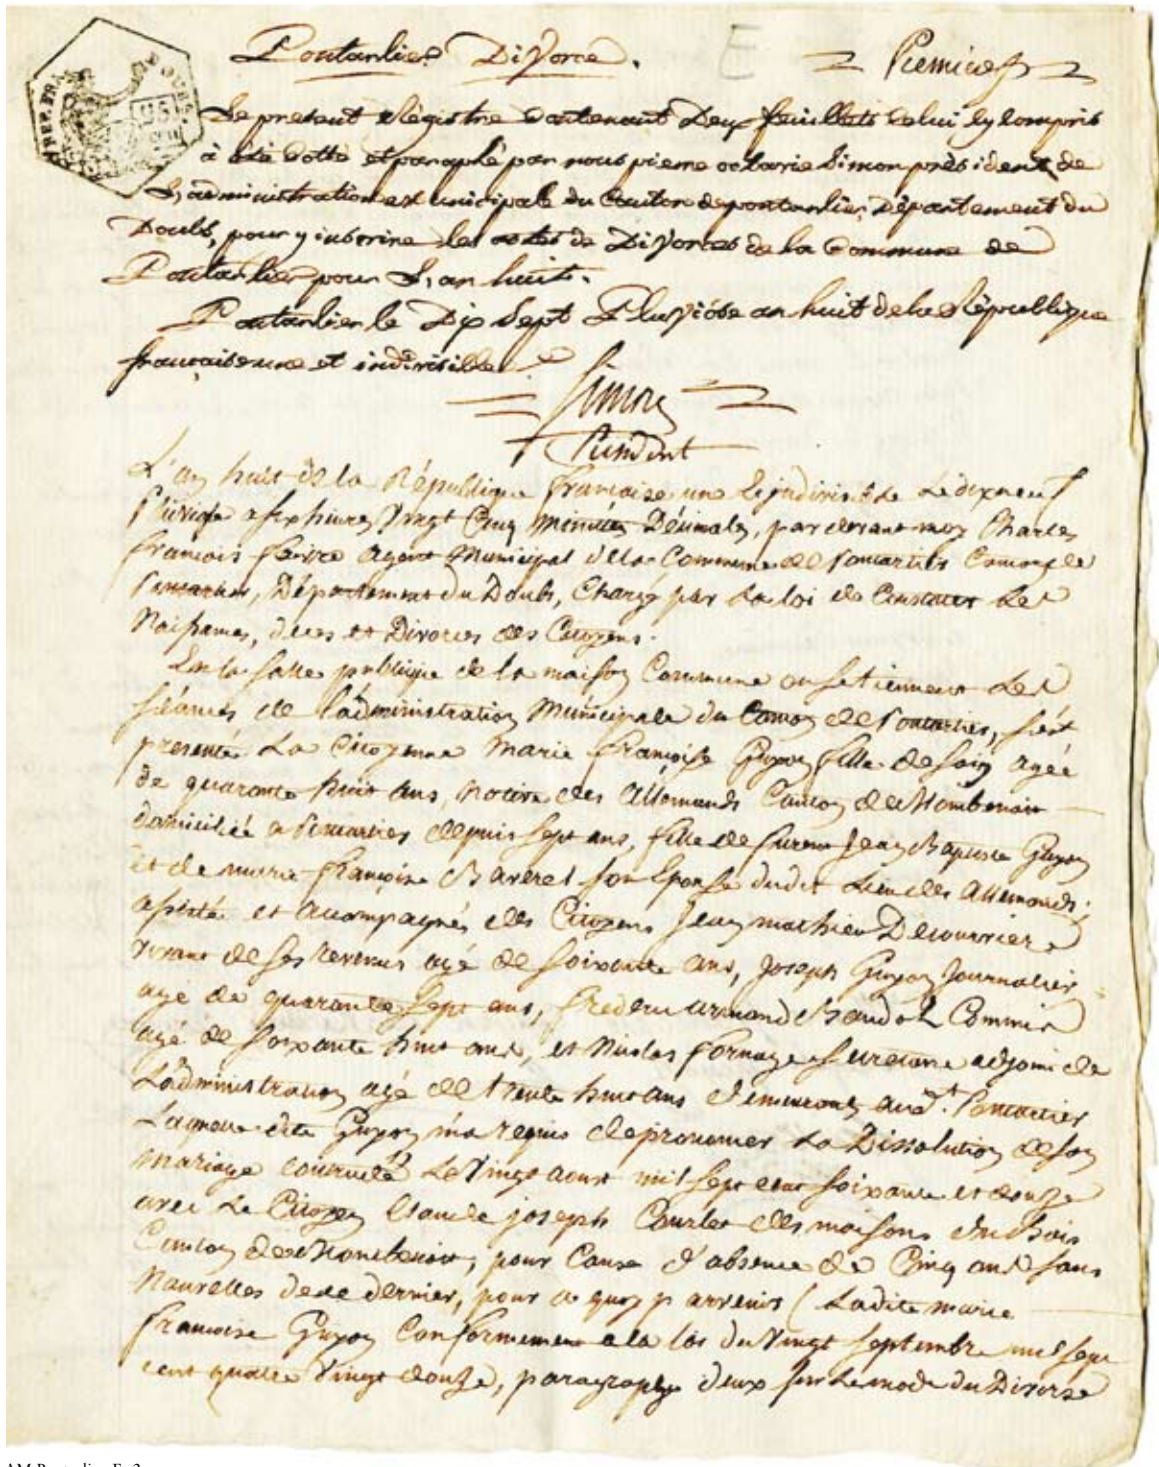 Pontarlier Divorce. E Premier
Le present Régistre Contenant Deux feuillets Celui cy Compris
à été Cotté et paraphé par nous pierre octavie Simon président de
L'administration municipale du Canton de pontarlier Département du
Doubs, pour y inscrire les actes de Divorces de la Commune de
Pontarlier pour L'an huit.
Pontarlier le Dix Sept Pluviôse an huit de la République
francaise une et indivisible
Simon
Président
L'an huit de la République francaise une et indivisible Le dix neuf
a six heures Vingt Cinq minutes Décimales, par devant moy Charles
francois faivre agent Municipal de la Commune de Pontarlier Canton de
Pontarlier, Département du Doubs, Chargé par La loi de Constater Les
Naissances, deces et Divorces des Citoyens.
En la salle publique de la maison Commune ou se tiennent Les
séances de l'administration Municipale du Canton de Pontarlier, s'est
presentée La Citoyenne Marie françoise Guyon fille de agée
de quarante huit ans, native des Allemands Canton de Montbenoit
domiciliée a Pontarlier depuis sept ans, fille de furent Jean Baptiste Guyon
et de marie françoise Baverel son Epouse dudit Lieu des Allemands;
assistée et accompagnée des Citoyens Jean mathieu Decourriere
vivant de ses revenus agé de soixante ans, Joseph Guyon Journalier
agé de quarante sept ans, frederic armand Baudot Commis
agé de soixante huit ans, et Nicolas fornage secretaire adjoint de
L'administration agé de trente huit ans demeurants aud.t Pontarlier
Laquelle dite Guyon m'a requis de prononcer La Dissolution de son
mariage contracté Le Vingt aoust mil sept cent soixante et douze
avec Le Citoyen Claude joseph Courlet des maisons du Bois
Canton de Montbenoit, pour Cause d'absence de Cinq ans sans
Nouvelles de ce dernier, pour a quoy parvenir Ladite marie
francoise Guyon Conformement a la loi du Vingt septembre mil sept
cent quatre Vingt douze, paragraphe deux sur Le mode du Divorce